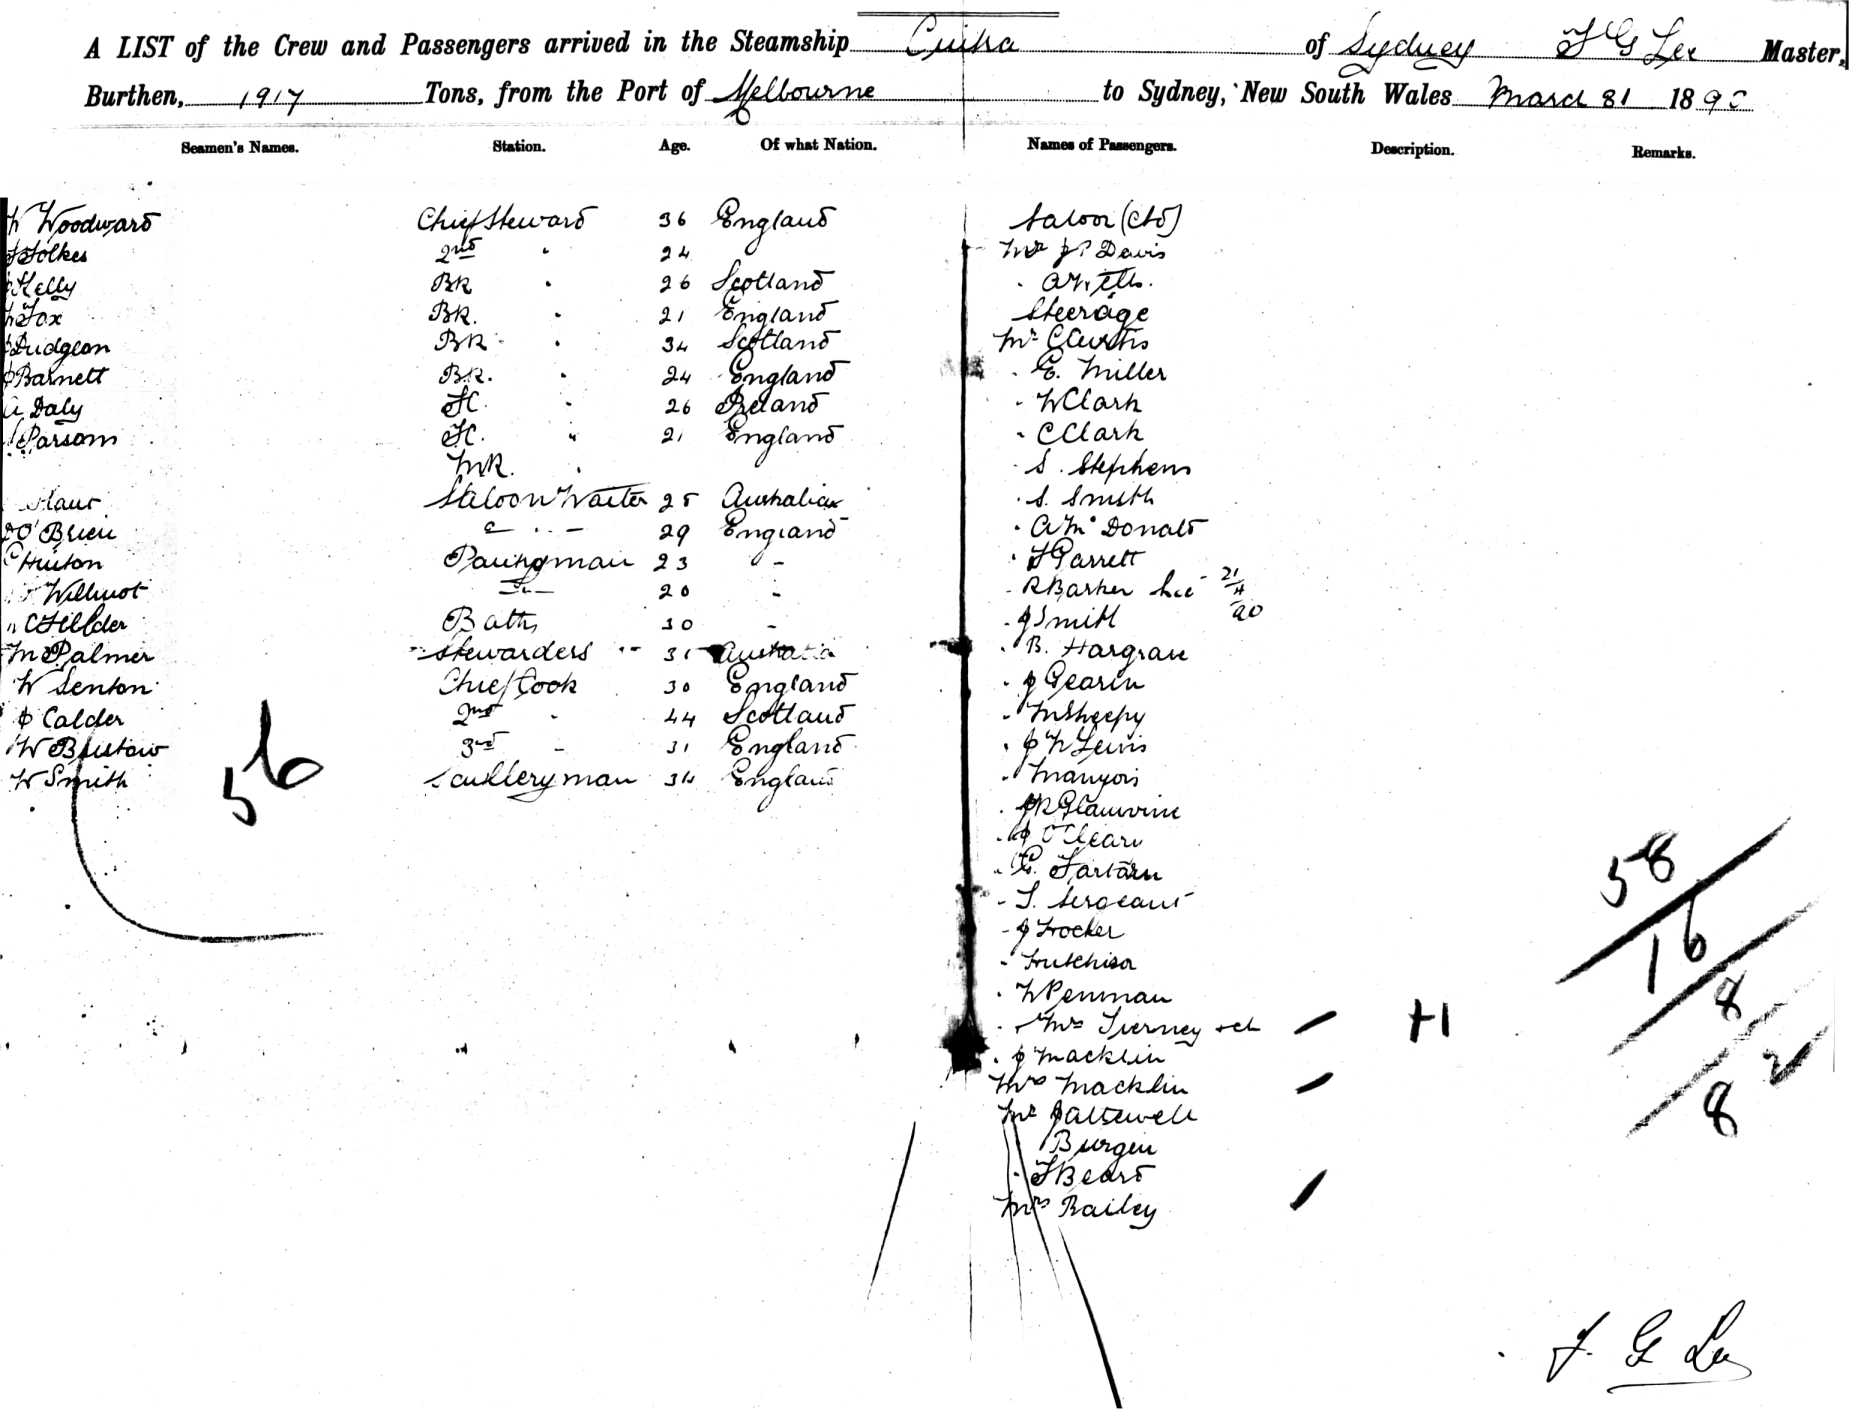 A LIST of the Crew and Passengers arrived in the Steamship of Sydney F G Lee Master,
Burthen, 1917 Tons, from the Port of Melbourne to Sydney, New South Wales March 31 1890
Seamen's Names. Station. Age. Of what Nation. Names of Passengers. Description. Remarks.
W Woodward Chief Steward 36 England
Folkes 2nd " 24
Kelly BR " 26 Scotland
Fox BR. " 21 England
Dudgeon BR " 34 Scotland
Barnett BR. " 24 England
Daly FC. " 26 Ireland
Parsons FC. " 21 England
MR. "
Saloon Waiter 25 Australian
O'Brien " 29 England
Hinton Pantryman 23 "
Wilmot 20 "
Bath 30 "
M Palmer Stewardess 35 Australia
W Senton Chief Cook 30 England
J Calder 2nd " 44 Scotland
W Bristow 3rd " 31 England
W Smith Scullery man 34 England
56
Saloon (Ctd)
Mr J P Davis
Steerage
Mr C Curtis
" E. Miller
" W Clark
" C Clark
" S. Stephens
" S. Smith
" A Mc Donald
" F Garrett
" R Barker 21/4/90
" J Smith
" B. Hargrave
" J Gearin
" M Sheepy
" J W Lewis
" J O'Cleary
" S. Sergeant
" J Trocker
" Hutchison
" W Penman
" Mrs Tierney + ch +1
" J Macklin
Mrs Macklin
Mr
Burgin
" F Beard
Mrs Bailey
58
16
8
2
8
F. G Lee